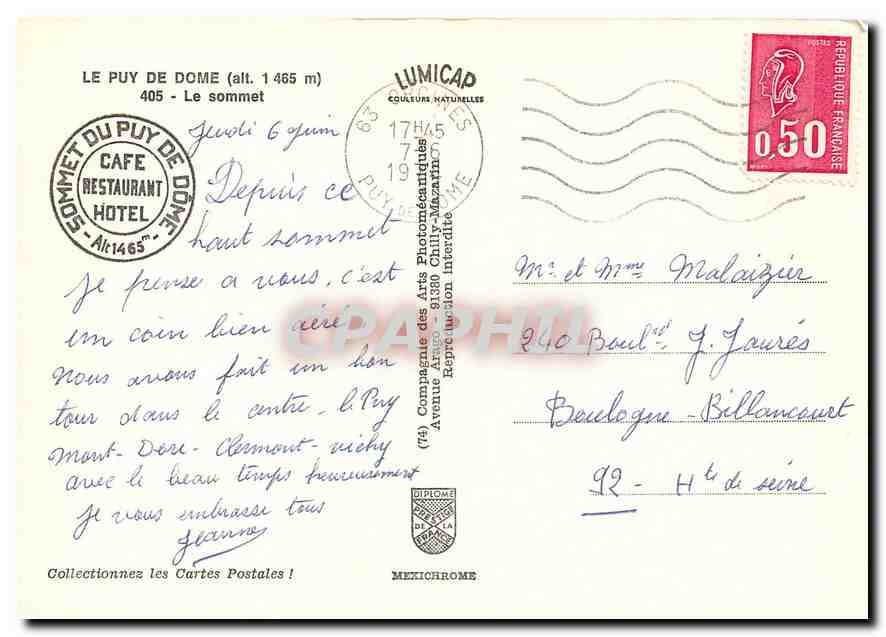 LE PUY DE DOME (alt. 1 465 m)
405 - Le sommet
SOMMET DU PUY DE DÔME
CAFE
RESTAURANT
HÔTEL
- Alt 1465m -
LUMICAP
COULEURS NATURELLES
63 ORCINES
17H45
7-6
19
PUY DE DOME
POSTES
REPUBLIQUE FRANÇAISE
0,50
Jeudi 6 Juin
Depuis ce
haut sommet
Je pense a vous, c'est
un coin bien aéré
Nous avons fait un bon
tour dans le centre - le Puy
Mont-Dore - Clermont - Vichy
avec le beau temps heureusement
Je vous embrasse tous
Jeanne
(74) Compagnie des Arts Photomécaniques
Avenue Arago - 91380 Chilly-Mazarin
Reproduction interdite
Mr et Mme Malaizier
240 Boulrd J. Jaurés
Boulogne-Billancourt
92 - Hte de seine
CPAPHIL
DIPLOME
PRESTIGE
DE LA
FRANCE
Collectionnez les Cartes Postales !
MEXICHROME